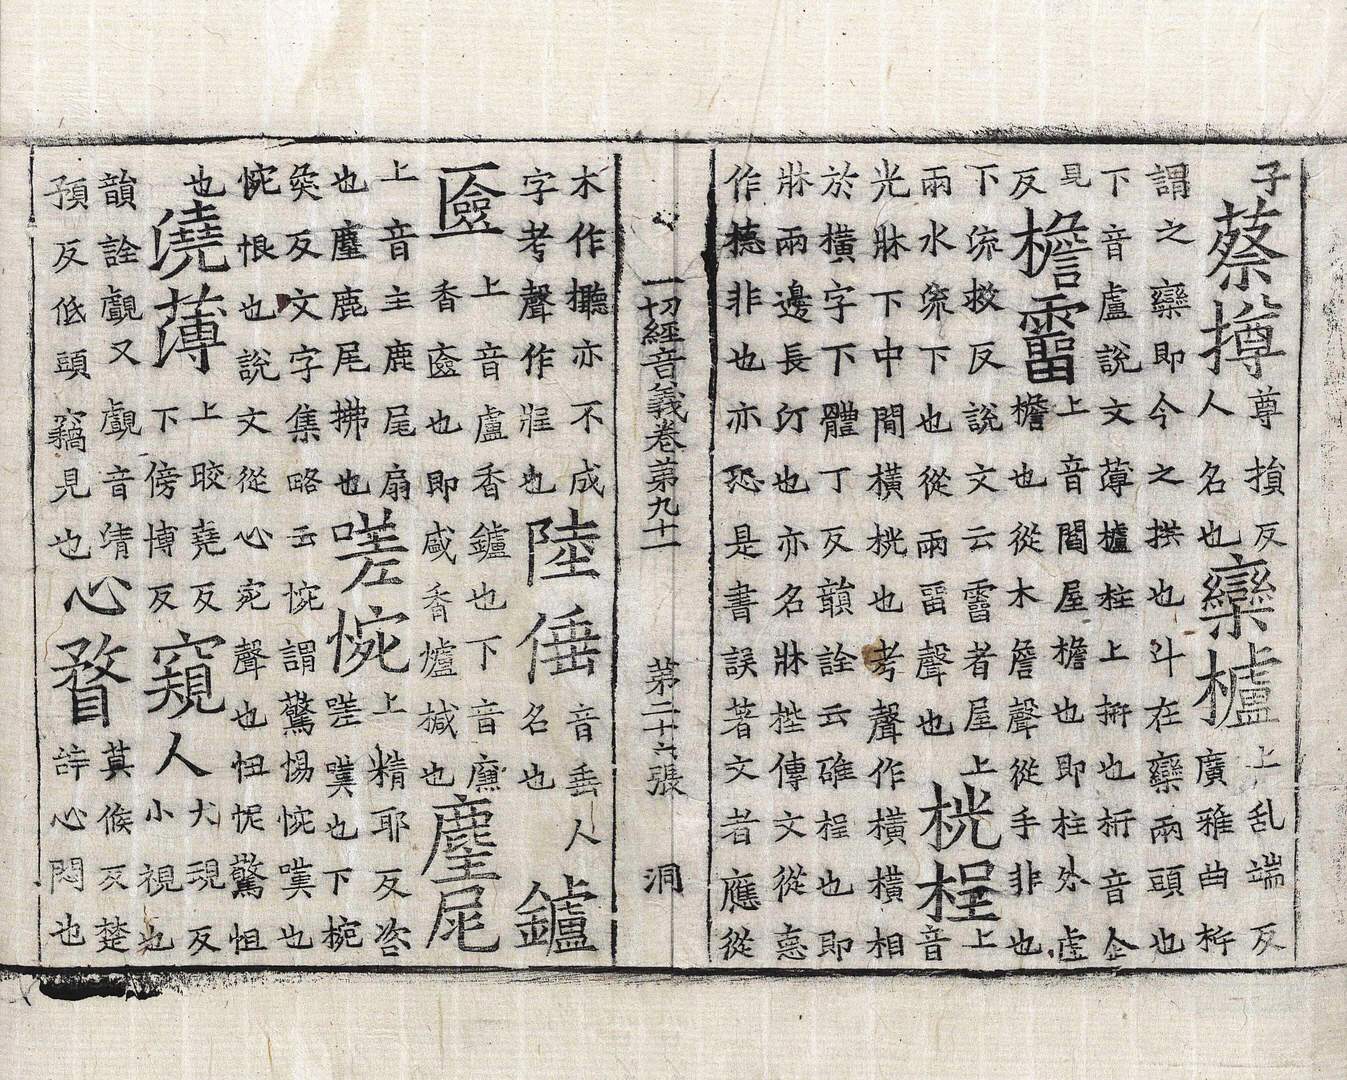 子蔡撙尊損反人名也欒櫨上乱端反廣雅曲枅
謂之欒即今之拱也斗在欒兩頭也下音盧說文薄櫨柱上枅也枅音企
見反檐霤上音閻屋檐也即柱外虛檐也從木詹聲從手非也
下流救反說文云霤者屋上兩水流下也從雨留聲也桄桯上音
光牀下中間橫桄也考聲作橫橫相於橫字下體丁反韻詮云碓桯也即
牀兩邊長汀也亦名牀梐傳文從悳作非也亦恐是書誤著文者應從
一切經音義卷第九十一 第二十六張 洞
木作亦不成字考聲作也陸倕音垂人名也鑪
匳上音盧香鑪也下音廉香匳也即盛香爐椷也麈尾
上音主鹿尾扇也麈鹿尾拂也嗟惋上精耶反咨嗟嘆也下椀
奐反文字集略云惋謂驚惕惋嘆也惋恨也說文從心宛聲也忸怩驚怛
也澆薄上晈堯反下傍博反窺人犬規反小視也
韻詮覰又覰音清預反低頭竊見也心瞀莫候反楚辞心悶也